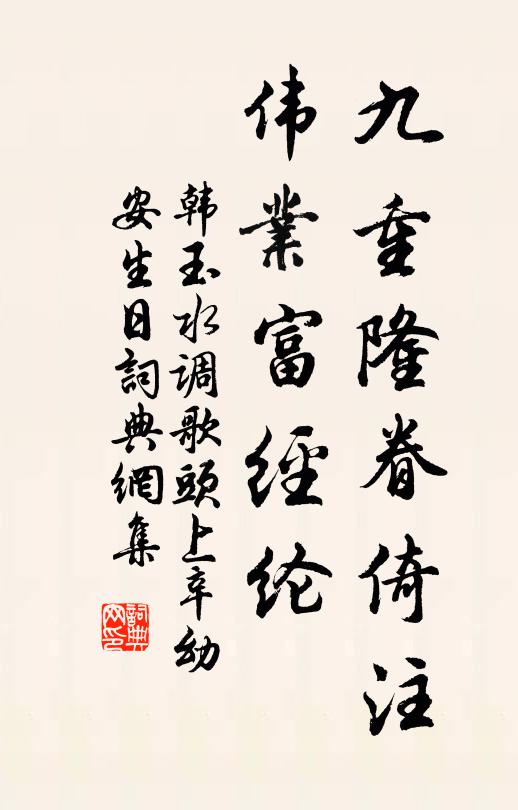 九重隆眷倚注
伟業富經纶
韩玉水调歌頭上辛幼
安生日詞典網集
詞典网印